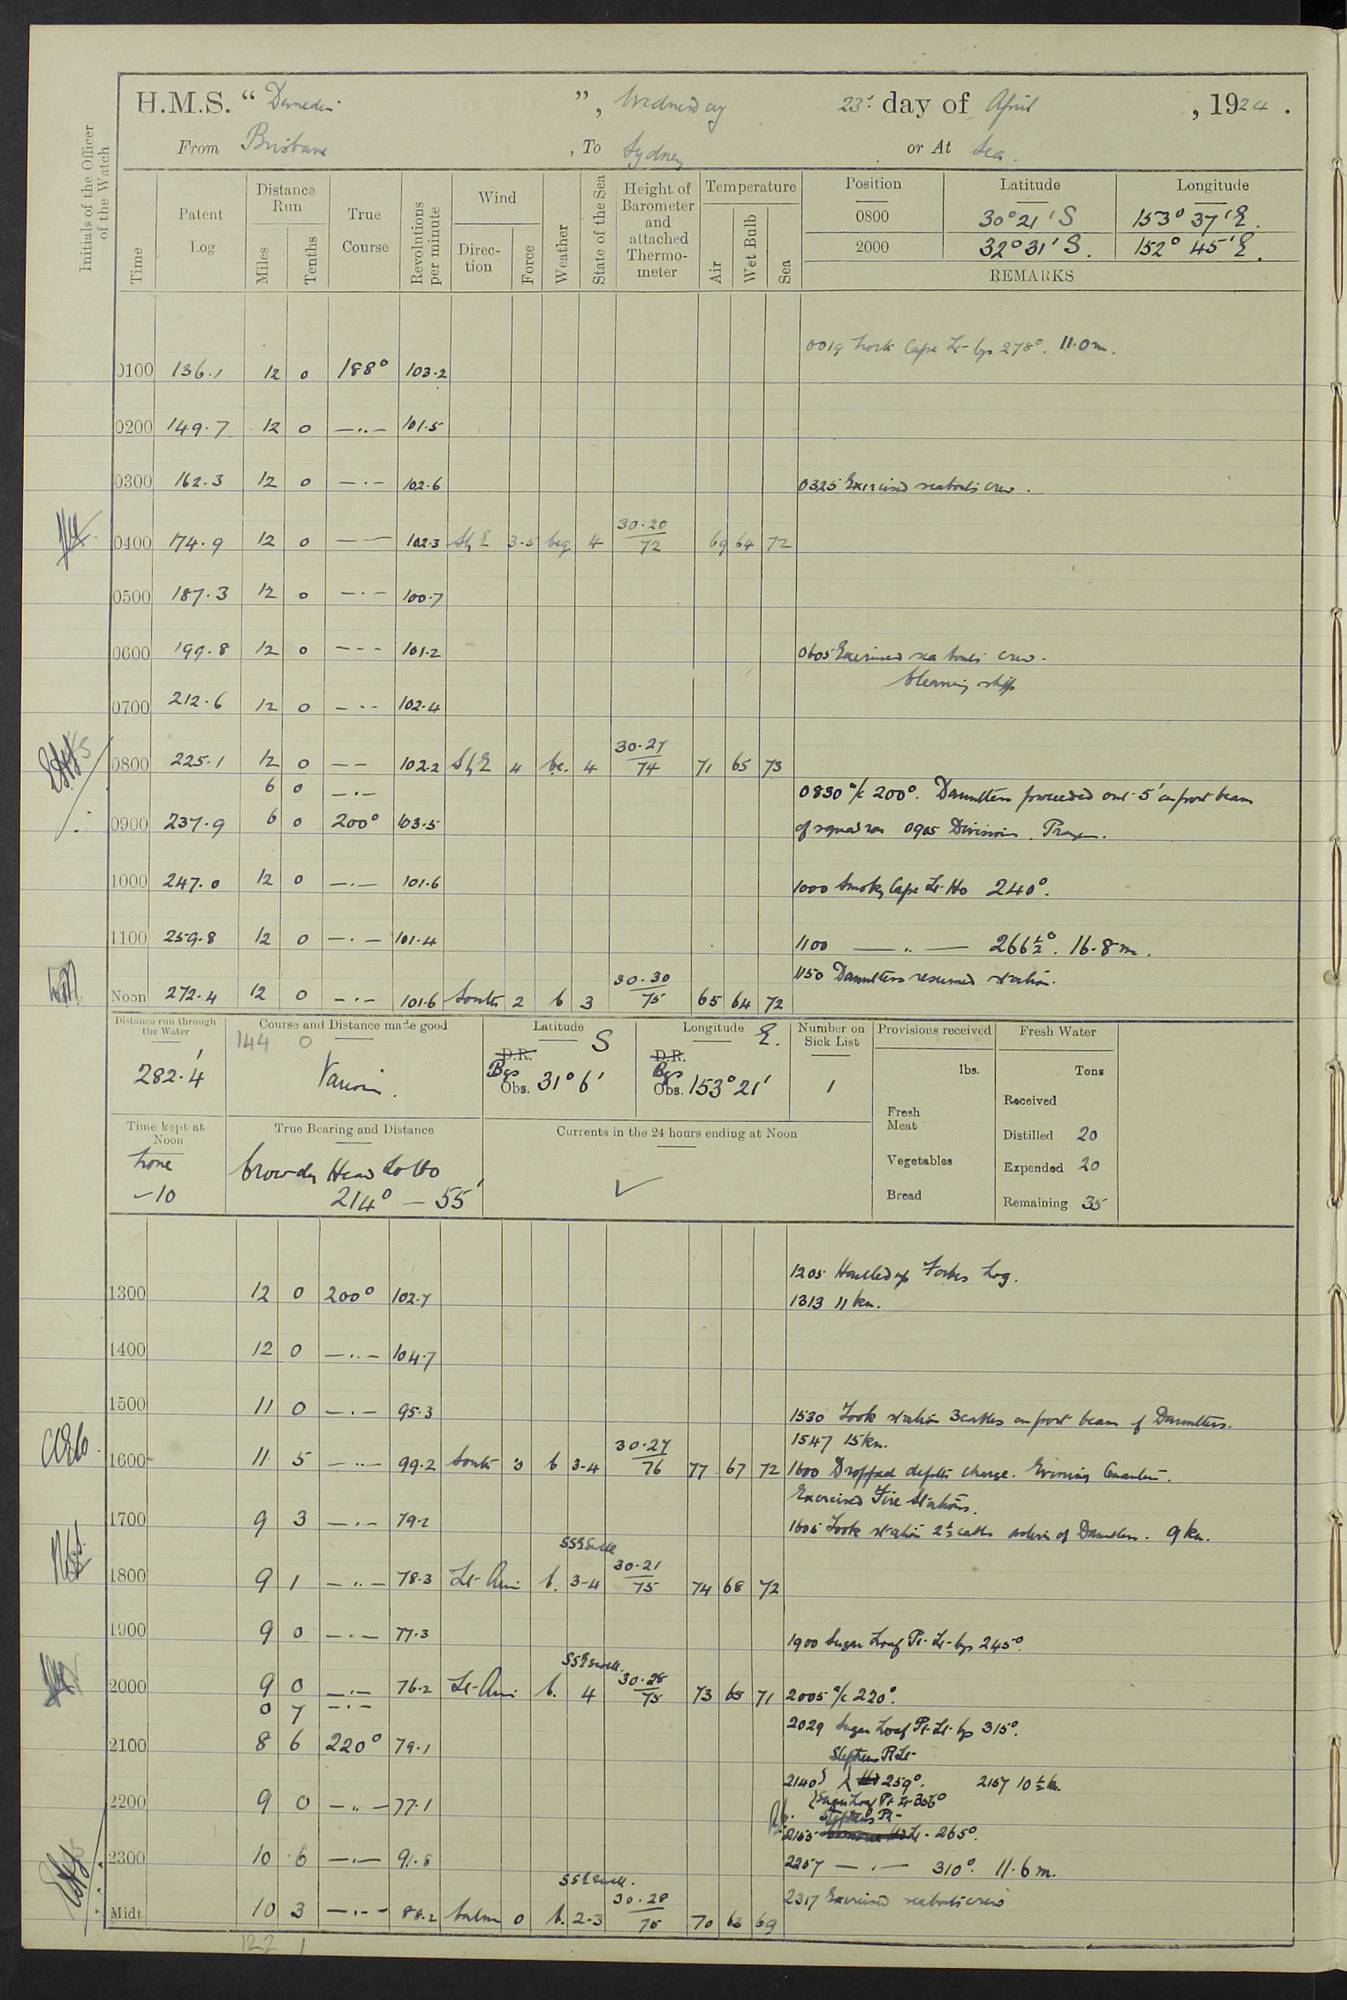 H.M.S. “ Dunedin ”, Wednesday 23rd day of April , 1924 .
From Brisbane , To Sydney or At Sea.
Initials of the Officer of the Watch
Time Patent Log Distance Run Miles Tenths True Course Revolutions per minute Wind Direction Force Weather State of the Sea Height of Barometer and attached Thermometer Temperature Air Wet Bulb Sea
Position Latitude Longitude
0800 30° 21' S 153° 37' E.
2000 32° 31' S. 152° 45' E.
REMARKS
0019 North Cape Lt bg 278°. 11.0 m.
0100 136.1 12 0 188° 103.2
0200 149.7 12 0 —..— 101.5
0300 162.3 12 0 —.— 102.6 0325 Exercised seaboats crew.
0400 174.9 12 0 —— 102.3 SbE 3-5 bcq 4 30.20/72 69 64 72
0500 187.3 12 0 —.— 100.7
0600 199.8 12 0 --- 101.2 0605 Exercised sea boats crew.
Cleaning ship
0700 212.6 12 0 —.. 102.4
0800 225.1 12 0 —— 102.2 SbE 4 bc. 4 30.27/74 71 65 73
6 0 —.— 0830 a/c 200°. Dauntless proceeded out 5' on port beam
0900 237.9 6 0 200° 103.5 of squadron 0905 Divisions. Prayers.
1000 247.0 12 0 —.— 101.6 1000 Smoky Cape Lt Ho 240°.
1100 259.8 12 0 —.— 101.4 1100 —..— 266½°. 16.8 m.
1150 Dauntless resumed station.
Noon 272.4 12 0 —.— 101.6 South 2 b 3 30.30/75 65 64 72
Distance run through the Water Course and Distance made good Latitude Longitude Number on Sick List Provisions received Fresh Water
144 0
282.4' Various. D.R. S Bgs Obs. 31° 6' D.R. E. Bgs Obs. 153° 21' 1
lbs. Tons
Fresh Meat
Vegetables
Bread
Received
Distilled 20
Expended 20
Remaining 35
Time kept at Noon True Bearing and Distance Currents in the 24 hours ending at Noon
Zone –10 Crowdy Head Lt Ho 214° – 55' ✓
1205 Hauled up Forbes Log.
1300 12 0 200° 102.7 1313 11 kn.
1400 12 0 —..— 104.7
1500 11 0 —.— 95.3 1530 Took station 3 cables on port beam of Dauntless.
1547 15 kn.
1600 11 5 —..— 99.2 South 3 b 3-4 30.27/76 77 67 72 1600 Dropped depth charge. Evening Quarters.
Exercised Fire Stations.
1700 9 3 —.— 79.2 1605 Took station 2½ cables astern of Dauntless. 9 kn.
SSE Swell
1800 9 1 —..— 78.3 Lt Airs b. 3-4 30.21/75 74 68 72
1900 9 0 —.— 77.3 1900 Sugar Loaf Pt. Lt bg 245°.
SSE Swell.
2000 9 0 —.— 76.2 Lt Airs b. 4 30.28/75 73 65 71 2005 a/c 220°.
0 7 —.— 2029 Sugar Loaf Pt. Lt. bg 315°.
2100 8 6 220° 79.1
Stephens Pt Lt
2140 259°. 2157 10½ k.
Sugar Loaf Pt. Lt 356°
2200 9 0 —..— 77.1
Stephens Pt
2155 Lt. 265°.
2300 10 6 —.— 91.8 2257 —.— 310°. 11.6 m.
SSE Swell.
2317 Exercised seaboats crew
Midt 10 3 —..— 88.2 Calm 0 b. 2-3 30.28/75 70 63 69
122 1